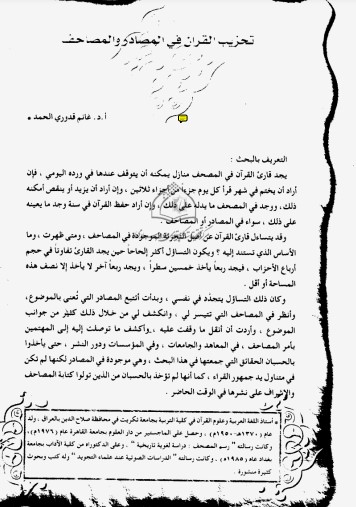 تحزيب القرآن في المصادر والمصاحف
أ.د. غانم قدوري الحمد *
التعريف بالبحث :
يجد قارئ القرآن في المصحف منازل يمكنه أن يتوقف عندها في ورده اليومي ، فإن
أراد أن يختم في شهر قرأ كل يوم جزءاً من أجزاء ثلاثين ، وإن أراد أن يزيد أو ينقص أمكنه
ذلك ، ووجد في المصحف ما يدله على ذلك ، وإن أراد حفظ القرآن في سنة وجد ما يعينه
على ذلك ، سواء في المصادر أو المصاحف .
وقد يتساءل قارئ القرآن عن أصل التجزئة الموجودة في المصاحف ، ومتى ظهرت ، وما
الأساس الذي تستند إليه ؟ ويكون التساؤل أكثر إلحاحاً حين يجد القارئ تفاوتاً في حجم
أرباع الأحزاب ، فيجد ربعاً يأخذ خمسين سطراً ، ويجد ربعاً آخر لا يأخذ إلا نصف هذه
المساحة أو أقل .
وكان ذلك التساؤل يتجدّد في نفسي ، وبدأت أتتبع المصادر التي تُعنى بالموضوع،
وأنظر في المصاحف التي تتيسر لي ، وانكشف لي من خلال ذلك كثير من جوانب
الموضوع ، وأردت أن أنقل ما وقفت عليه ، وأكشف ما توصلت إليه إلى المهتمين
بأمر المصاحف ، في المعاهد والجامعات ، وفي المؤسسات ودور النشر ، حتى يأخذوا
بالحسبان الحقائق التي جمعتها في هذا البحث ، وهي موجودة في المصادر لكنها لم تكن
في متناول يد جمهور القراء ، كما أنها لم تؤخذ بالحسبان من الذين تولوا كتابة المصاحف
والإشراف على نشرها في الوقت الحاضر .
* أستاذ اللغة العربية وعلوم القرآن في كلية التربية بجامعة تكريت في محافظة صلاح الدين بالعراق ، ولد
عام (١٣٧٠هـ-١٩٥٠م) ، وحصل على الماجستير من دار العلوم بجامعة القاهرة عام (١٩٧٦م) ،
وكانت رسالته " رسم المصحف : دراسة لغوية تاريخية " ، وعلى الدكتوراه من كلية الآداب بجامعة
بغداد عام (١٩٨٥م) ، وكانت رسالته " الدراسات الصوتية عند علماء التجويد " وله كتب وبحوث
كثيرة منشورة